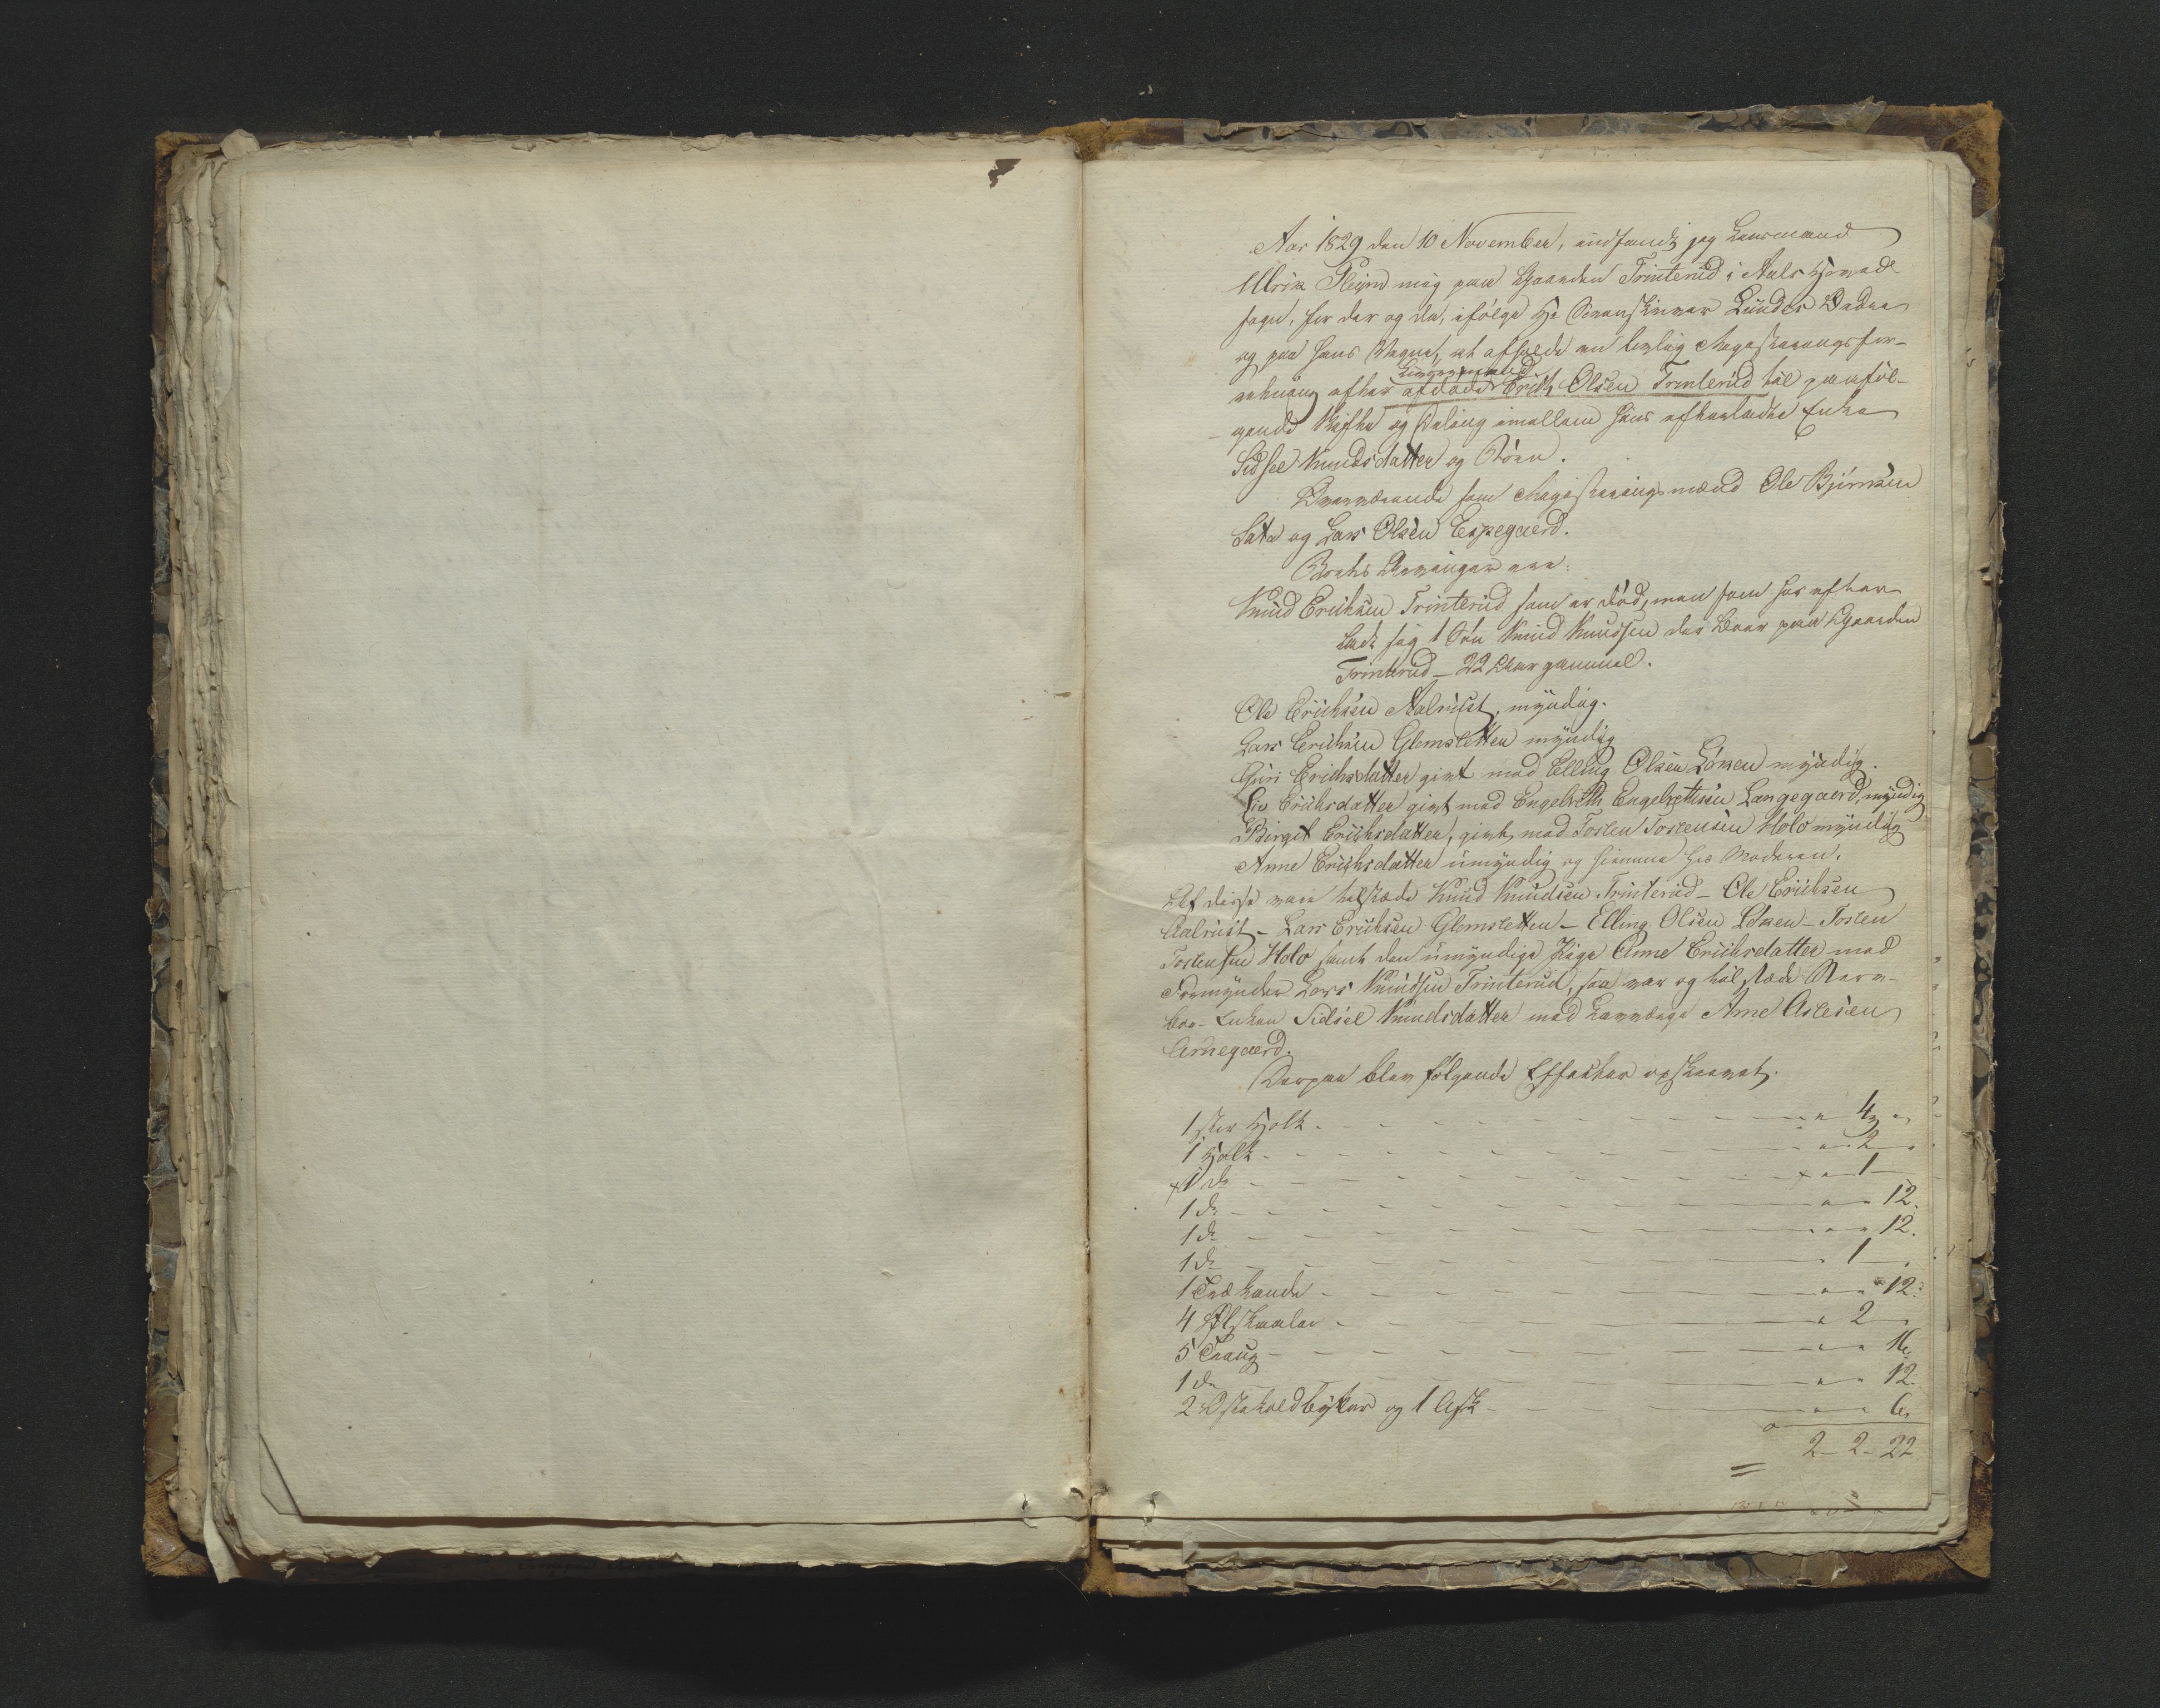 Aar 1829 den 10 November, indfandt jeg Lensmand
Ulrik Pleym mig paa Gaarden Trinterud i Aals Hoved
sogn, for der og da, ifølge Hr Sorenskriver Lunders Ordre
og paa hans Vegne, at afholde en lovlig Registreringsfor-
retning efter afdøde Erich Olsen Trinterud til paaføl-
gende Skifte og Deling imellem hans efterladte Enke
Sidsel Knudsdatter og Børn.
Overværende som Registreringsmænd Ole Bjørnsen
Sata og Lars Olsen Espegaerd.
Boets Arvinger ere:
Knud Erichsen Trinterud som er død, men som har efter-
ladt sig 1 Søn Knud Knudsen der boer paa Gaarden
Trinterud – 22 Aar gammel.
Ole Erichsen Aalrust, myndig.
Lars Erichsen Glomsletten myndig
Guri Erichsdatter givt med Elling Olsen Løken myndig.
Siv Erichsdatter givt med Engelreth Engelrethsen Langegaerd, myndig
Birgit Erichsdatter, givt med Tosten Tostensen Holo myndig
Anne Erichsdatter umyndig og hiemme hos Moderen.
Af disse vare tilstæde Knud Knudsen Trinterud – Ole Erichsen
Aalrust – Lars Erichsen Glomsletten – Elling Olsen Løken – Tosten
Tostensen Holo samt den umyndige Pige Anne Erichsdatter med
Formynder Lars Knudsen Trinterud, saa var og tilstæde Sterv-
boe-Enken Sidsel Knudsdatter med Laugværge Arne Aslesen
Arnegaerd.
Derpaa blev følgende Effecter opskrevet.
1 stor Holk - - - " 4 "
1 Holk - - - " 2 "
x 1 do - - - x " 1 -
1 do - - - " " 12.
1 do - - - " " 12.
1 do - - - " 1 -
1 Trækande - - - " " 12.
4 Ølskaaler - - - " 2 -
5 Traug - - - " " 16
1 do - - - " " 12.
2 og 1 Ask - - - " " 6
2 - 2 - 22